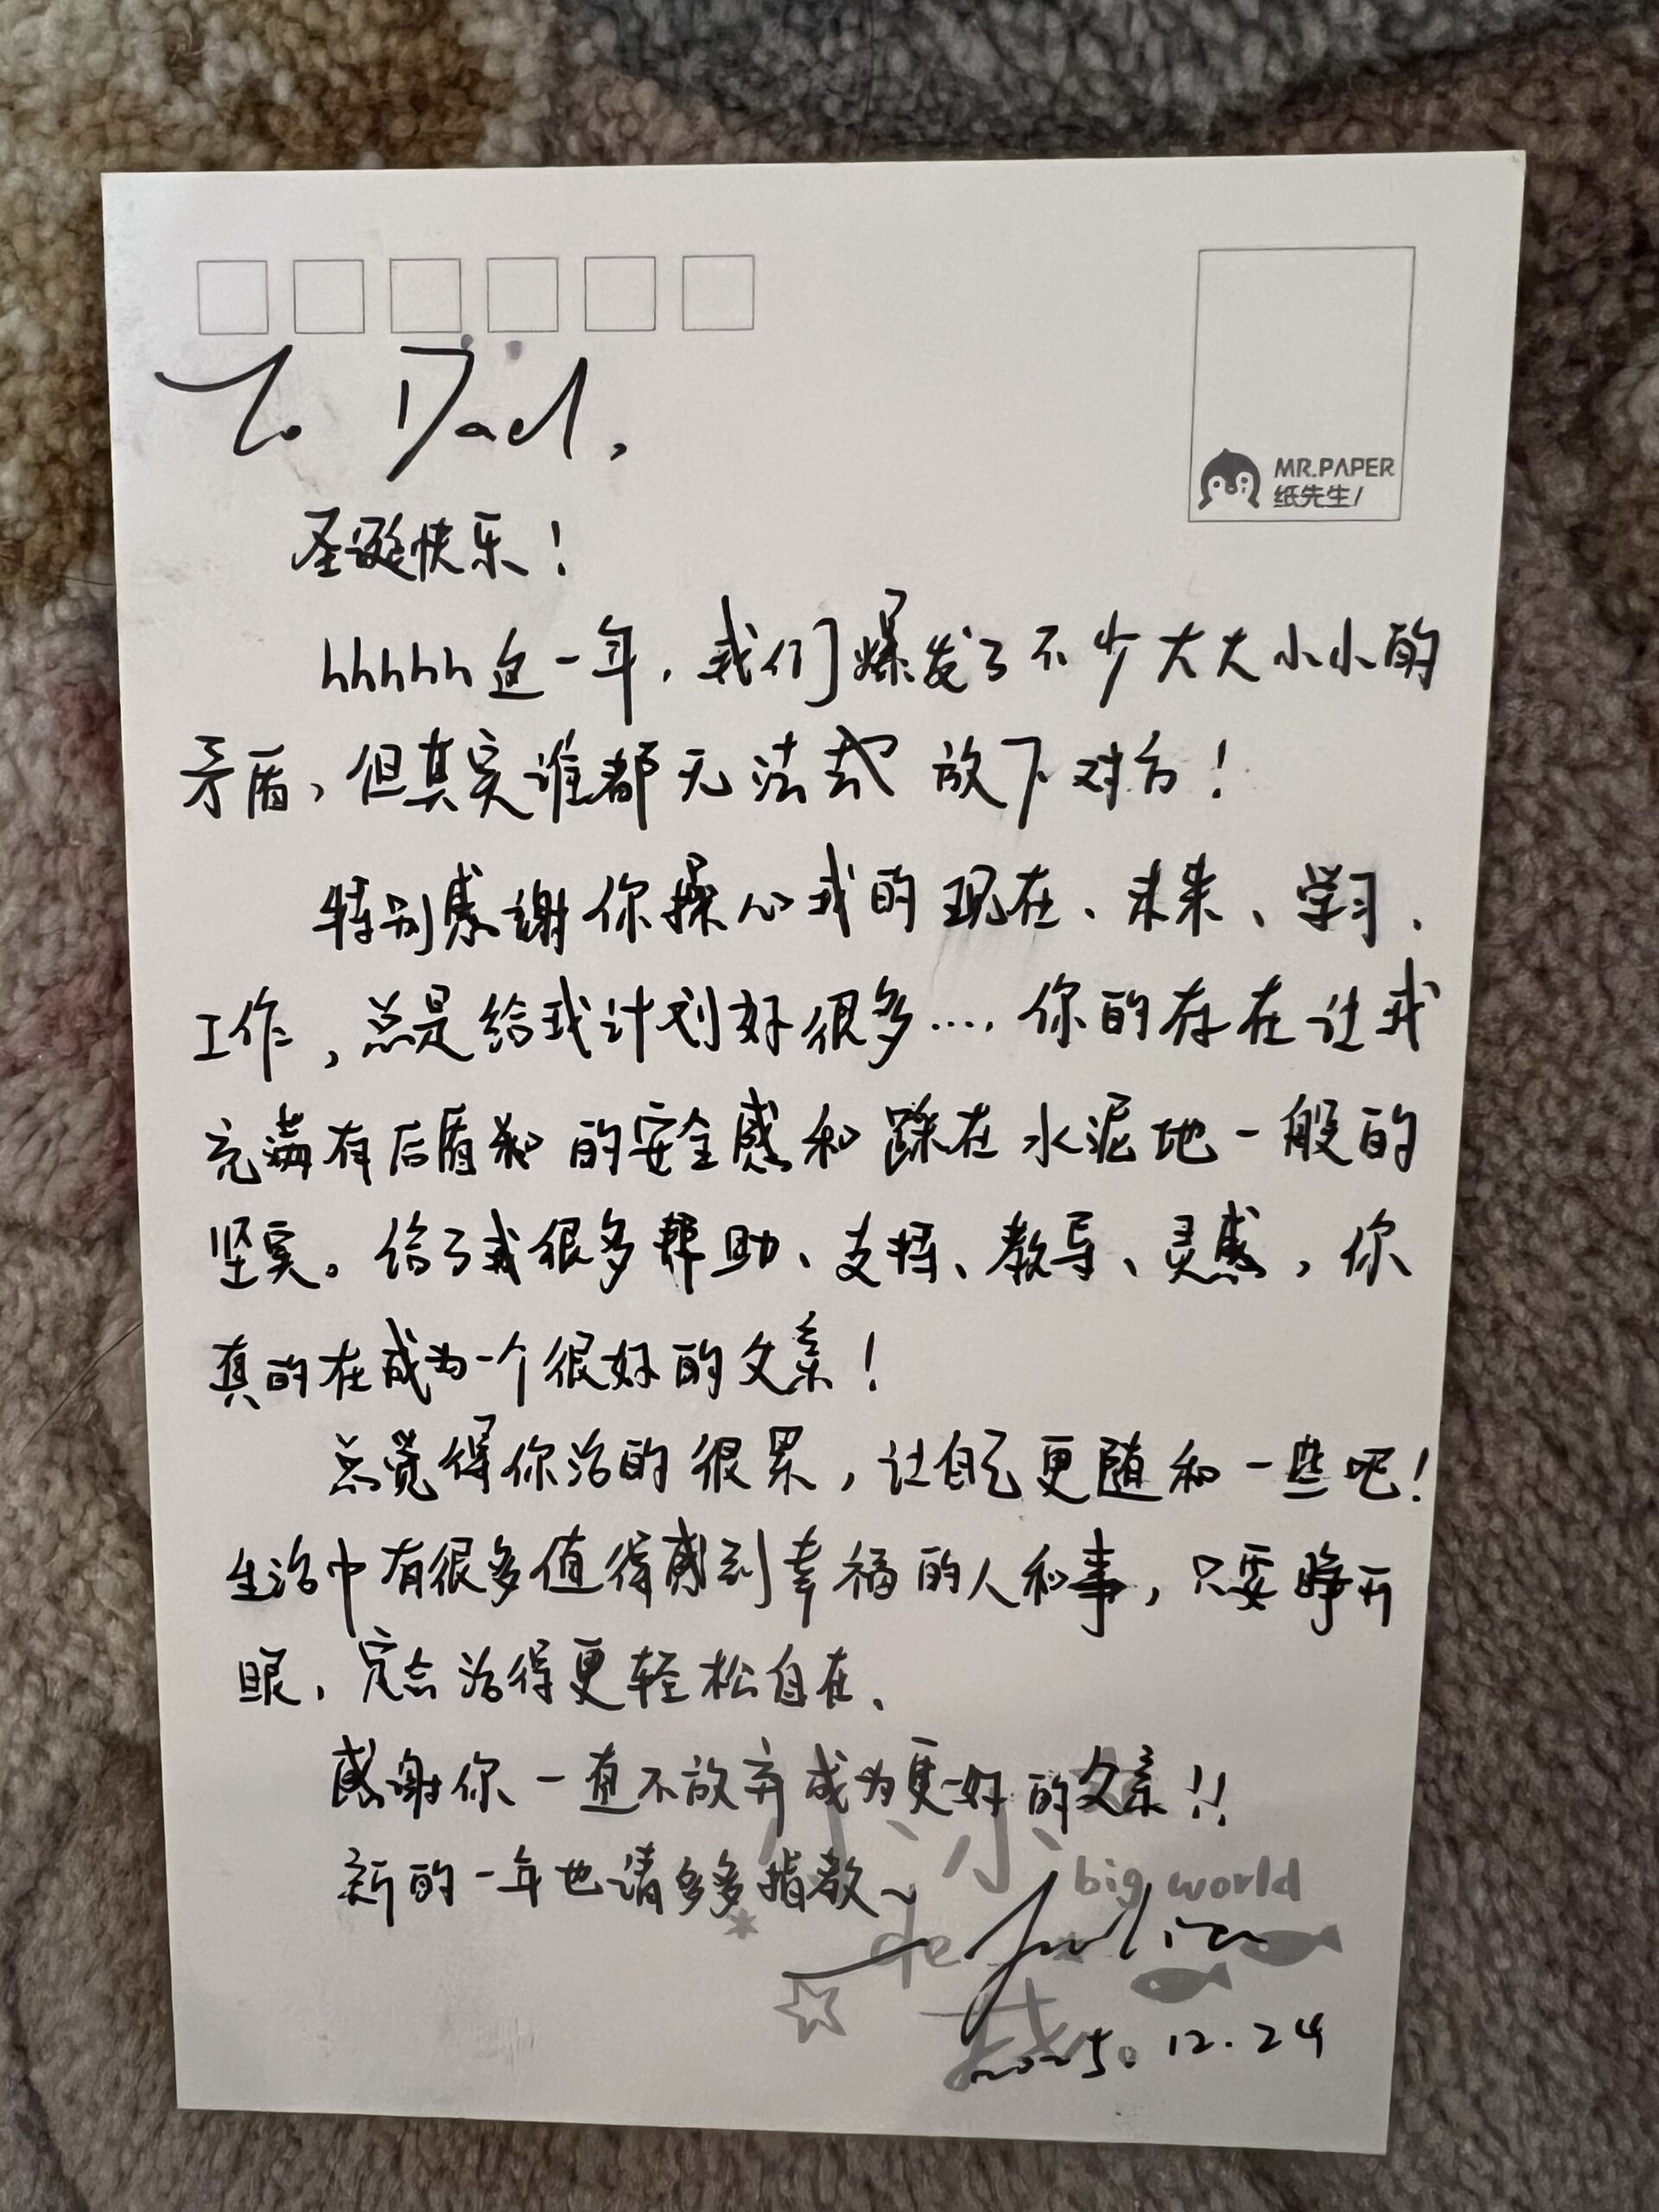 To Dad,
MR.PAPER
纸先生/
圣诞快乐!
hhhhh这一年,我们爆发了不少大大小小的
矛盾,但其实谁都无法 放下对方!
特别感谢你操心我的现在、未来、学习、
工作,总是给我计划好很多.... 你的存在让我
充满有后盾 的安全感和踩在水泥地一般的
坚实。给了我很多帮助、支持、教导、灵感,你
真的在成为一个很好的父亲!
总觉得你活的很累,让自己更随和一些吧!
生活中有很多值得感到幸福的人和事,只要睁开
眼,定会活得更轻松自在、
感谢你一直不放弃成为更好的父亲!!
新的一年也请多多指教~
小小
big world
de
我
2025. 12. 24